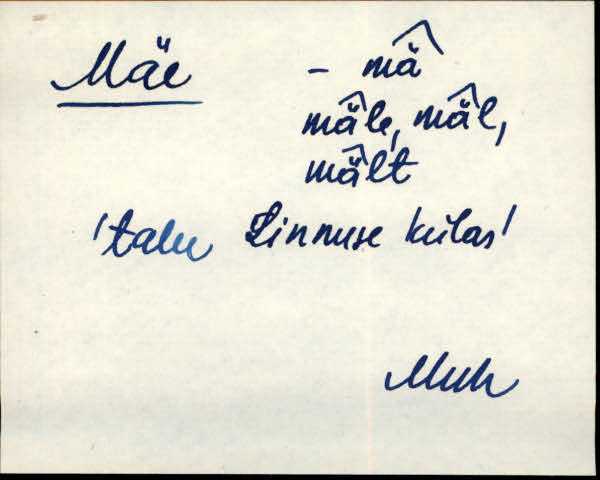 Mäe - mä̂
mä̂le, mä̂l,
mä̂lt
'talu Linnuse külas'
Muh